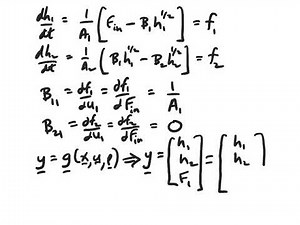 dh₁/dt = 1/A₁ [F_in - B₁h₁^½] = f₁
dh₂/dt = 1/A₂ [B₁h₁^½ - B₂h₂^½] = f₂
B₁₁ = ∂f₁/∂u₁ = ∂f₁/∂F_in = 1/A₁
B₂₁ = ∂f₂/∂u₁ = ∂f₂/∂F_in = 0
y = g(x,u,p) ⇒ y = [h₁ h₂ F₁] = [h₁ h₂]